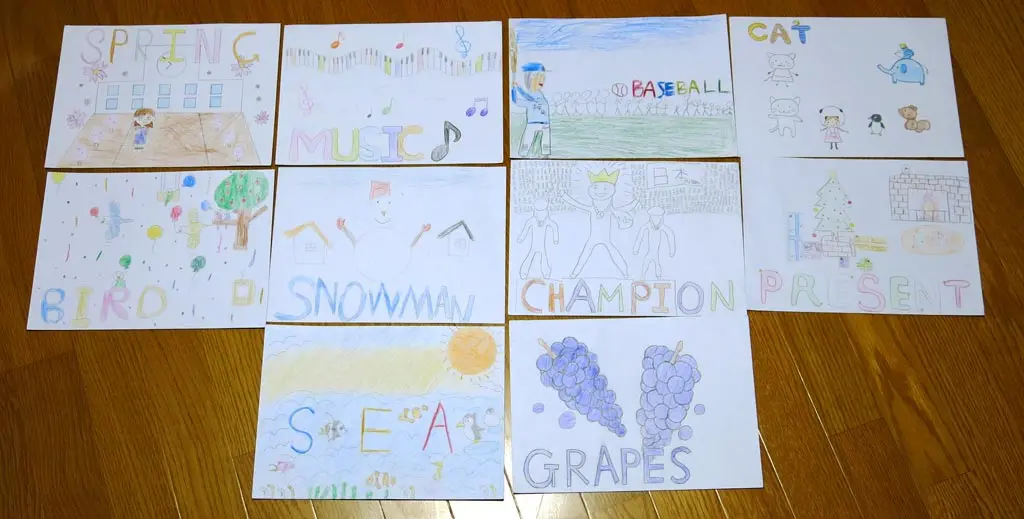 SPRING
MUSIC
BASEBALL
CAT
BIRD
SNOWMAN
日本
CHAMPION
PRESENT
SEA
GRAPES